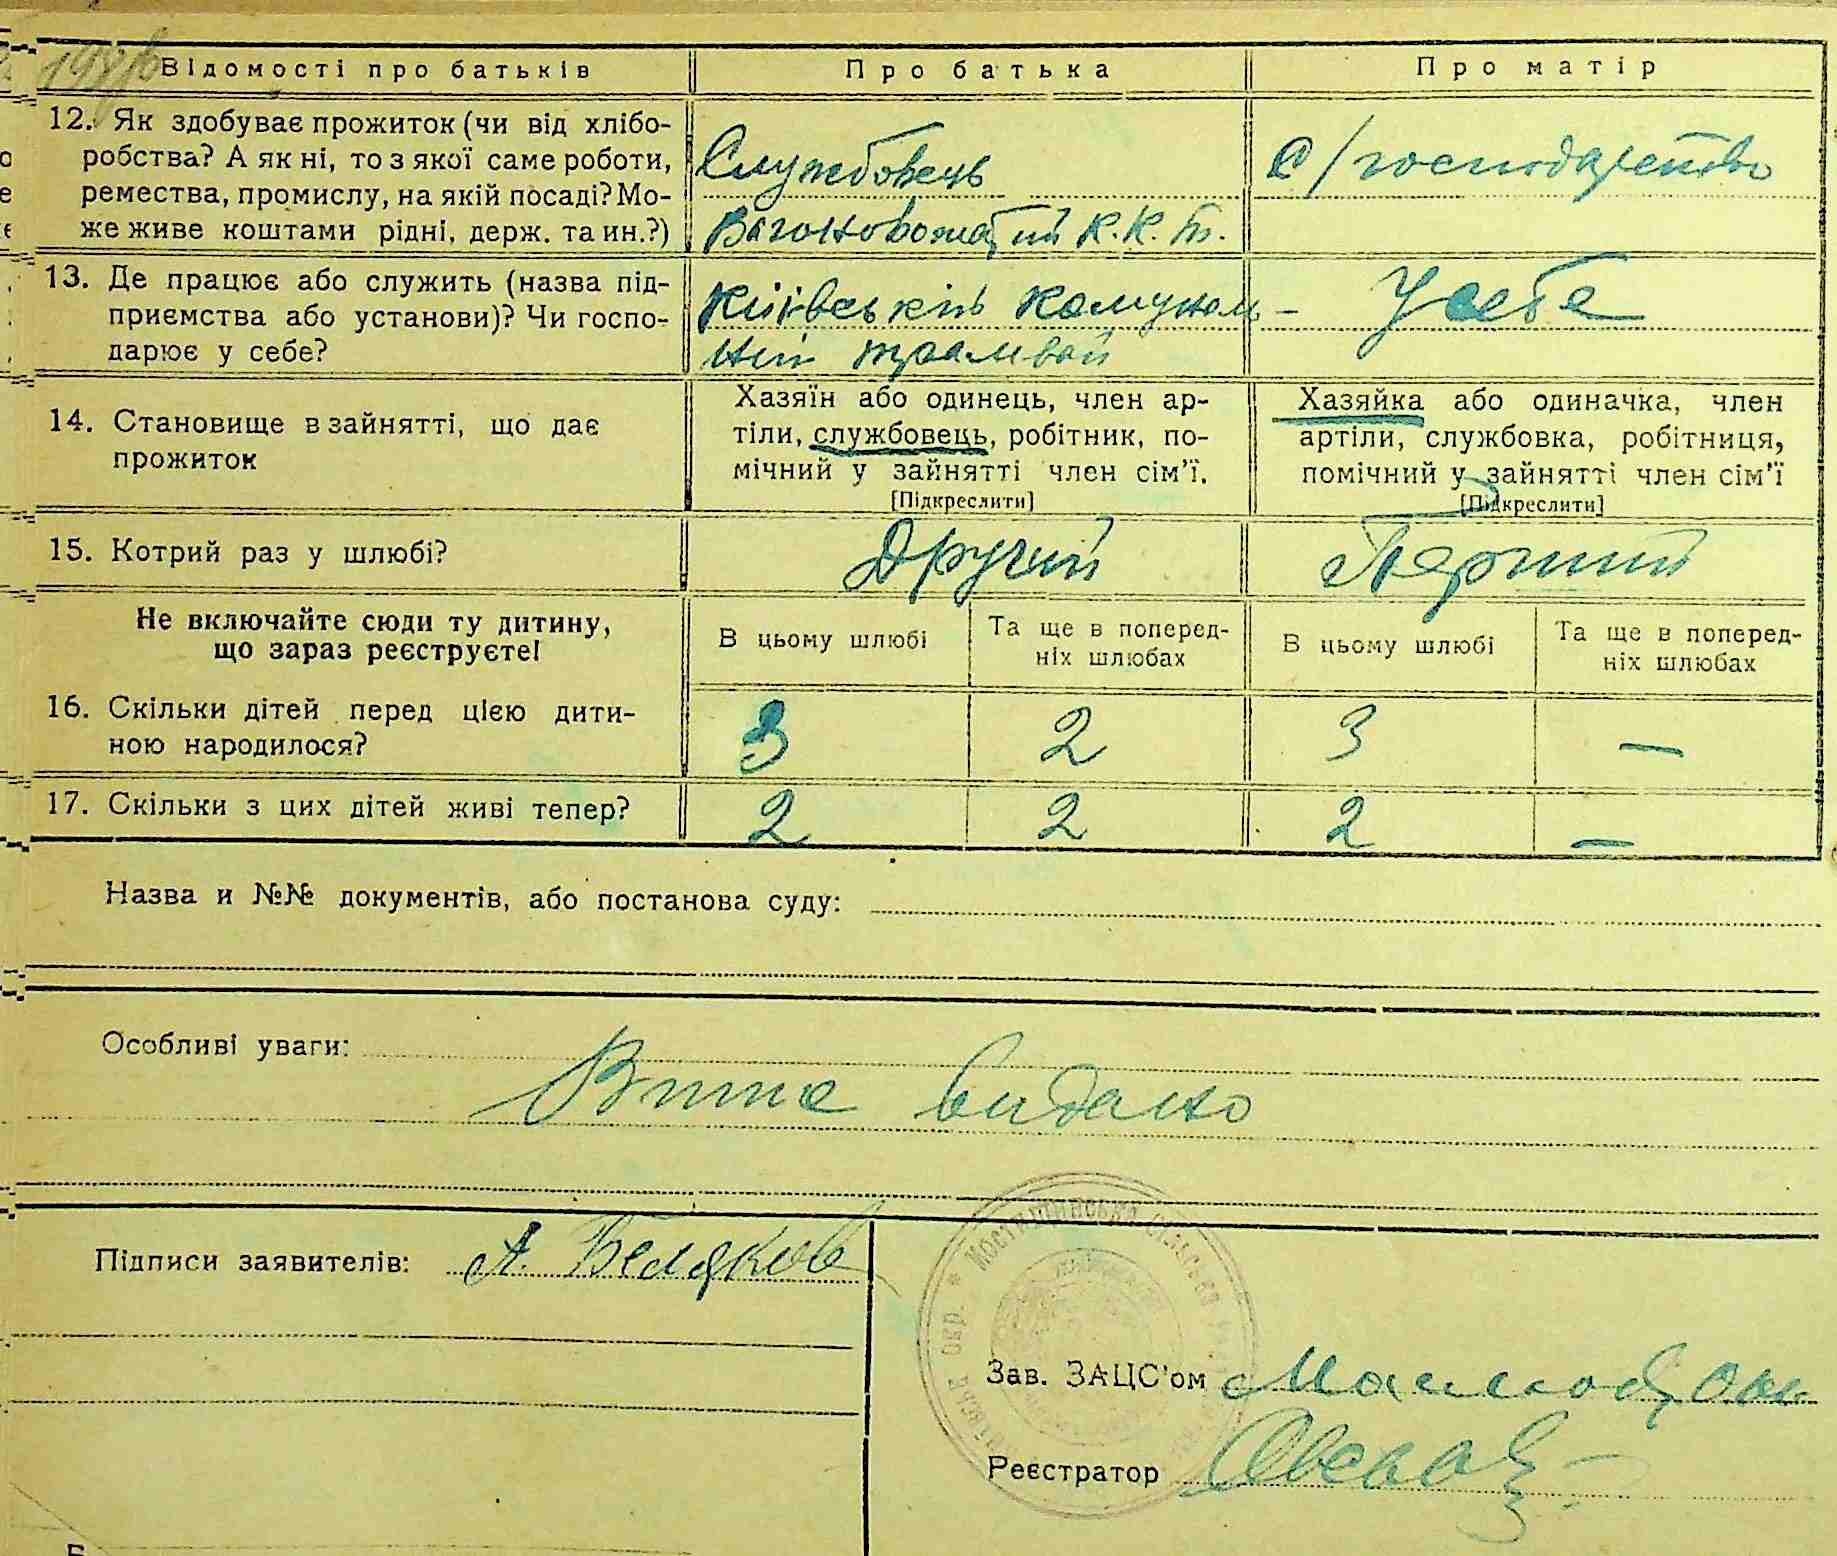 Відомості про батьків
Про батька
Про матір
12. Як здобуває прожиток (чи від хлібо-
робства? А як ні, то з якої саме роботи,
ремества, промислу, на якій посаді? Мо-
же живе коштами рідні, держ. та ин.?)
Службовець
Вагоновожатий К.К.Т.
С/господарство
13. Де працює або служить (назва під-
приємства або установи)? Чи госпо-
дарює у себе?
Київський Комуналь-
ний трамвай
У себе
14. Становище в зайнятті, що дає
прожиток
Хазяїн або одинець, член ар-
тіли, службовець, робітник, по-
мічний у зайнятті член сім'ї.
[Підкреслити]
Хазяйка або одиначка, член
артіли, службовка, робітниця,
помічний у зайнятті член сім'ї
[Підкреслити]
15. Котрий раз у шлюбі?
Другий
Перший
Не включайте сюди ту дитину,
що зараз реєструєте!
В цьому шлюбі
Та ще в поперед-
ніх шлюбах
В цьому шлюбі
Та ще в поперед-
ніх шлюбах
16. Скільки дітей перед цією дити-
ною народилося?
3
2
3
—
17. Скільки з цих дітей живі тепер?
2
2
2
—
Назва и №№ документів, або постанова суду:
Особливі уваги:
Витяг видано
Підписи заявителів: А. Беляков
МОСТИЩИНСЬКА СІЛЬСЬКА
ОКР.
Зав. ЗАЦС'ом
Реєстратор